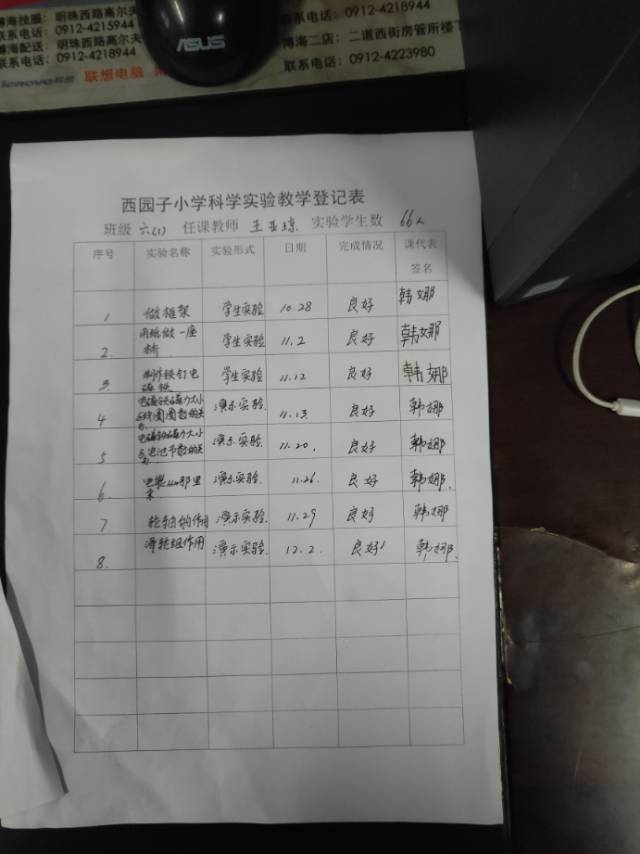 博海技服：明珠西路高尔夫
联系电话：0912-4215944
博海配送：明珠西路高尔夫
联系电话：0912-4218944
lenovo联想 联想电脑
ASUS
联系电话：0912-4218944
博海二店：二道西街房管所楼下
联系电话：0912-4223980
西园子小学科学实验教学登记表
班级 六(1) 任课教师 王亚琼 实验学生数 66人
序号 实验名称 实验形式 日期 完成情况 课代表签名
1 做框架 学生实验 10.28 良好 韩娜
2. 用纸做一座桥 学生实验 11.2 良好 韩娜
3. 制作铁钉电磁铁 学生实验 11.12 良好 韩娜
4 电磁铁磁力大小与线圈圈数的关系 演示实验 11.13 良好 韩娜
5 电磁铁磁力大小与电池节数的关系 演示实验 11.20. 良好 韩娜
6 电能从哪里来 演示实验 11.26. 良好 韩娜.
7 轮轴的作用 演示实验. 11.29 良好 韩娜
8. 滑轮组作用 演示实验. 12.2. 良好 韩娜.